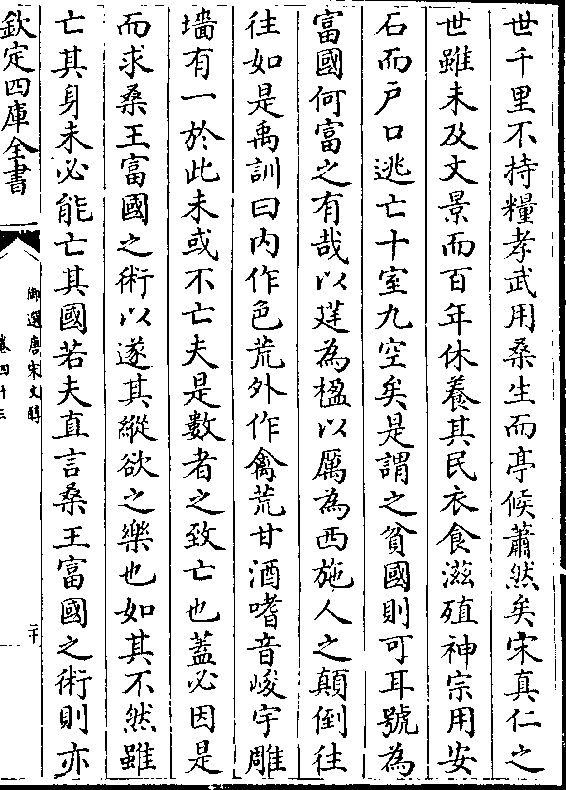 世千里不持糧孝武用桑生而亭候蕭然矣宋真仁之
世雖未及文景而百年休養其民衣食滋殖神宗用安
石而戶口逃亡十室九空矣是謂之貧國則可耳號為
富國何富之有哉以莛為楹以厲為西施人之顛倒往
往如是禹訓曰内作色荒外作禽荒甘酒嗜音峻宇雕
墻有一於此未或不亡夫是數者之致亡也蓋必因是
而求桑王富國之術以遂其縱欲之樂也如其不然雖
亡其身未必能亡其國若夫直言桑王富國之術則亦
欽定四庫全書
御選唐宋文醇
卷四十三
二十